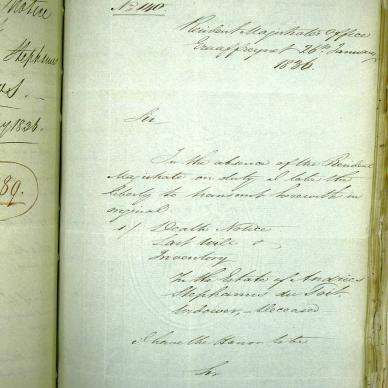 Notice
Stephanus
1836.
189.
No 140.
Resident Magistrates Office
Graaff Reynet 26th January
1836.
Sir
In the absence of the Resident
Magistrate on duty I take the
liberty to transmit herewith in
original
1/ Death Notice
Last Will &
Inventory
In the Estate of Andries
Stephanus du Toit.
Widower, Deceased
I have the Honor to be
Sir